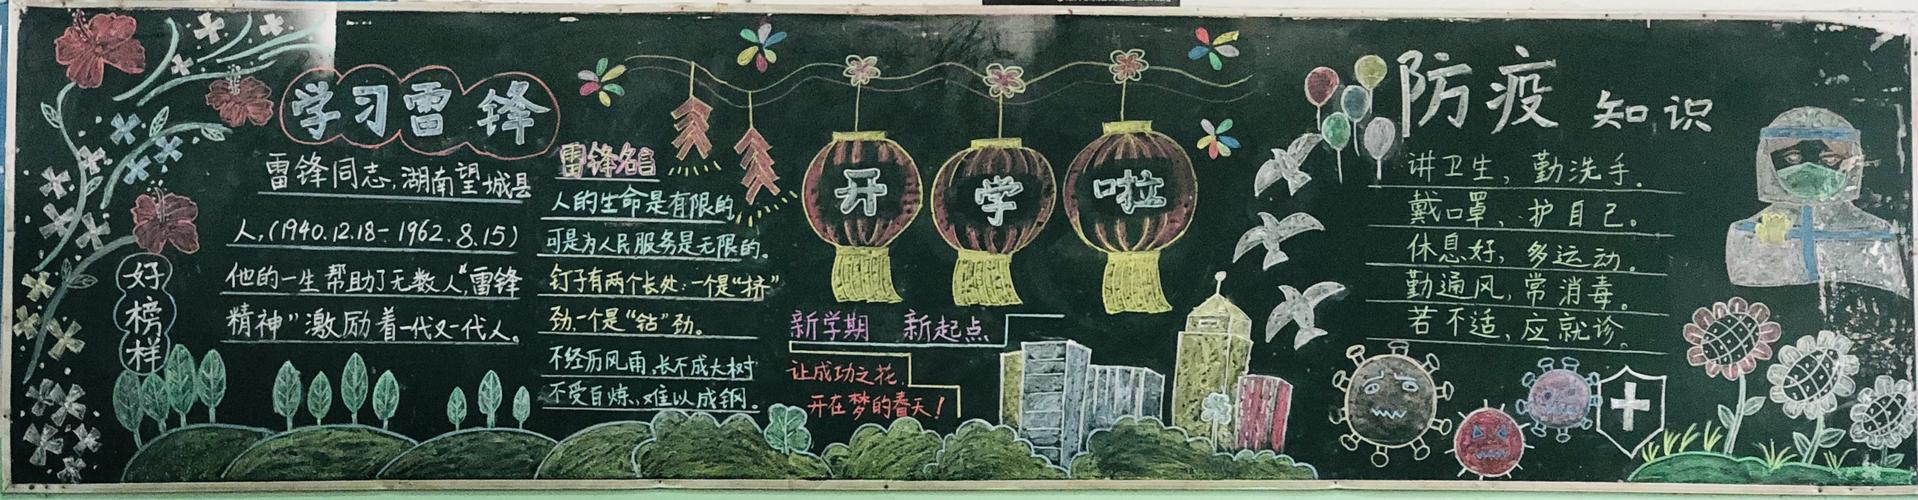 学习雷锋
雷锋同志,湖南望城县
人,(1940.12.18-1962.8.15)
他的一生帮助了无数人,"雷锋
精神"激励着一代又一代人。
好榜样
雷锋名言
人的生命是有限的,
可是为人民服务是无限的。
钉子有两个长处:一个是"挤"
劲,一个是"钻"劲。
不经历风雨,长不成大树
不受百炼,难以成钢。
开学啦
新学期 新起点
让成功之花,
开在梦的春天!
防疫知识
讲卫生,勤洗手。
戴口罩,护自己。
休息好,多运动。
勤通风,常消毒。
若不适,应就诊。